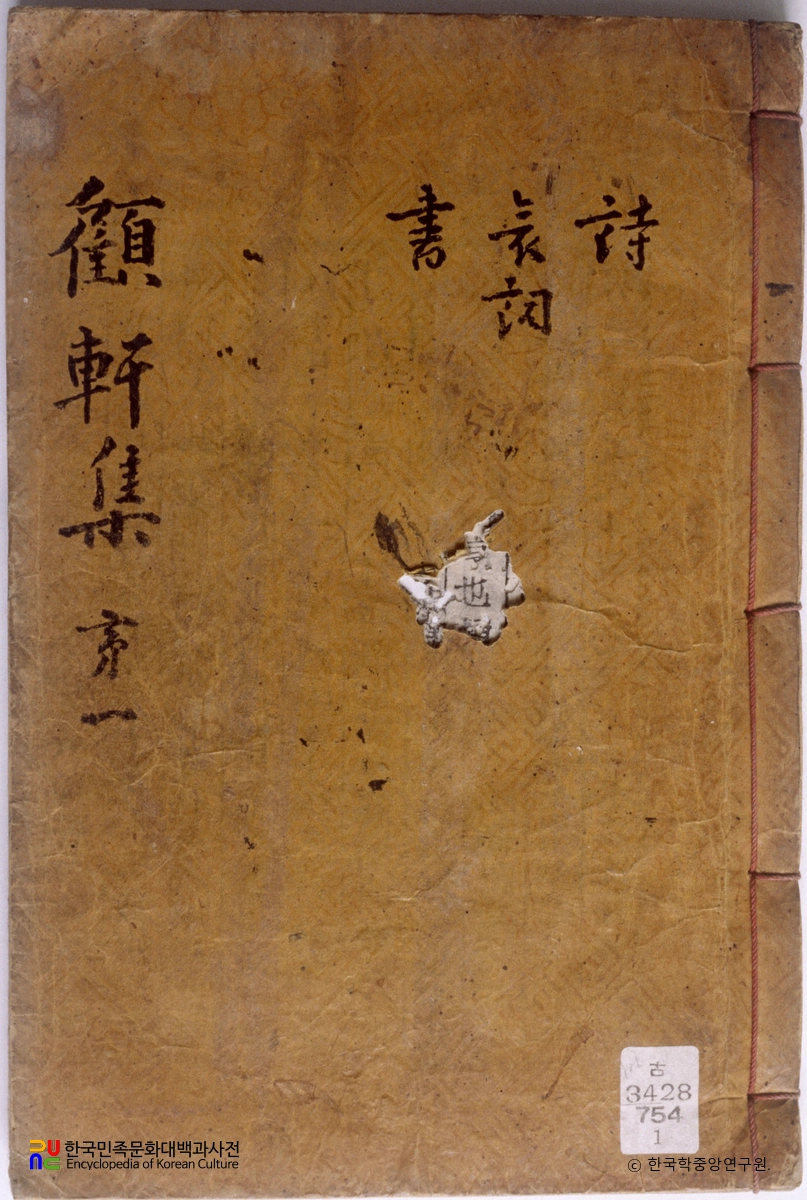 詩
哀詞
書
顧軒集 一
世
古
3428
754
1
한국민족문화대백과사전
Encyclopedia of Korean Culture
ⓒ 한국학중앙연구원